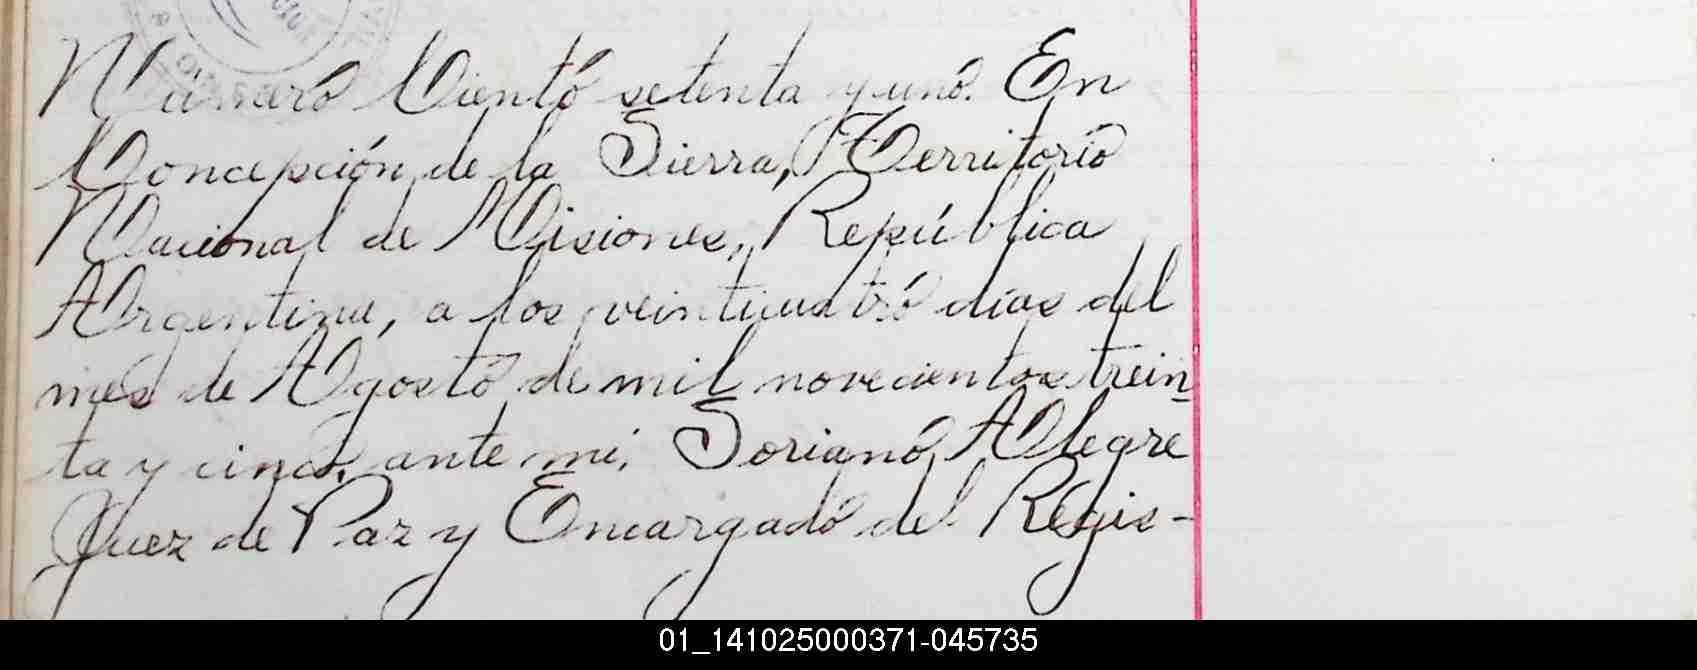 Número Ciento setenta y uno. En
Concepción de la Sierra, Territorio
Nacional de Misiones, República
Argentina, a los veinticuatro días del
mes de Agosto de mil novecientos trein
ta y cinco, ante mi, Soriano Alegre
Juez de Paz y Encargado del Regis-
01_141025000371-045735